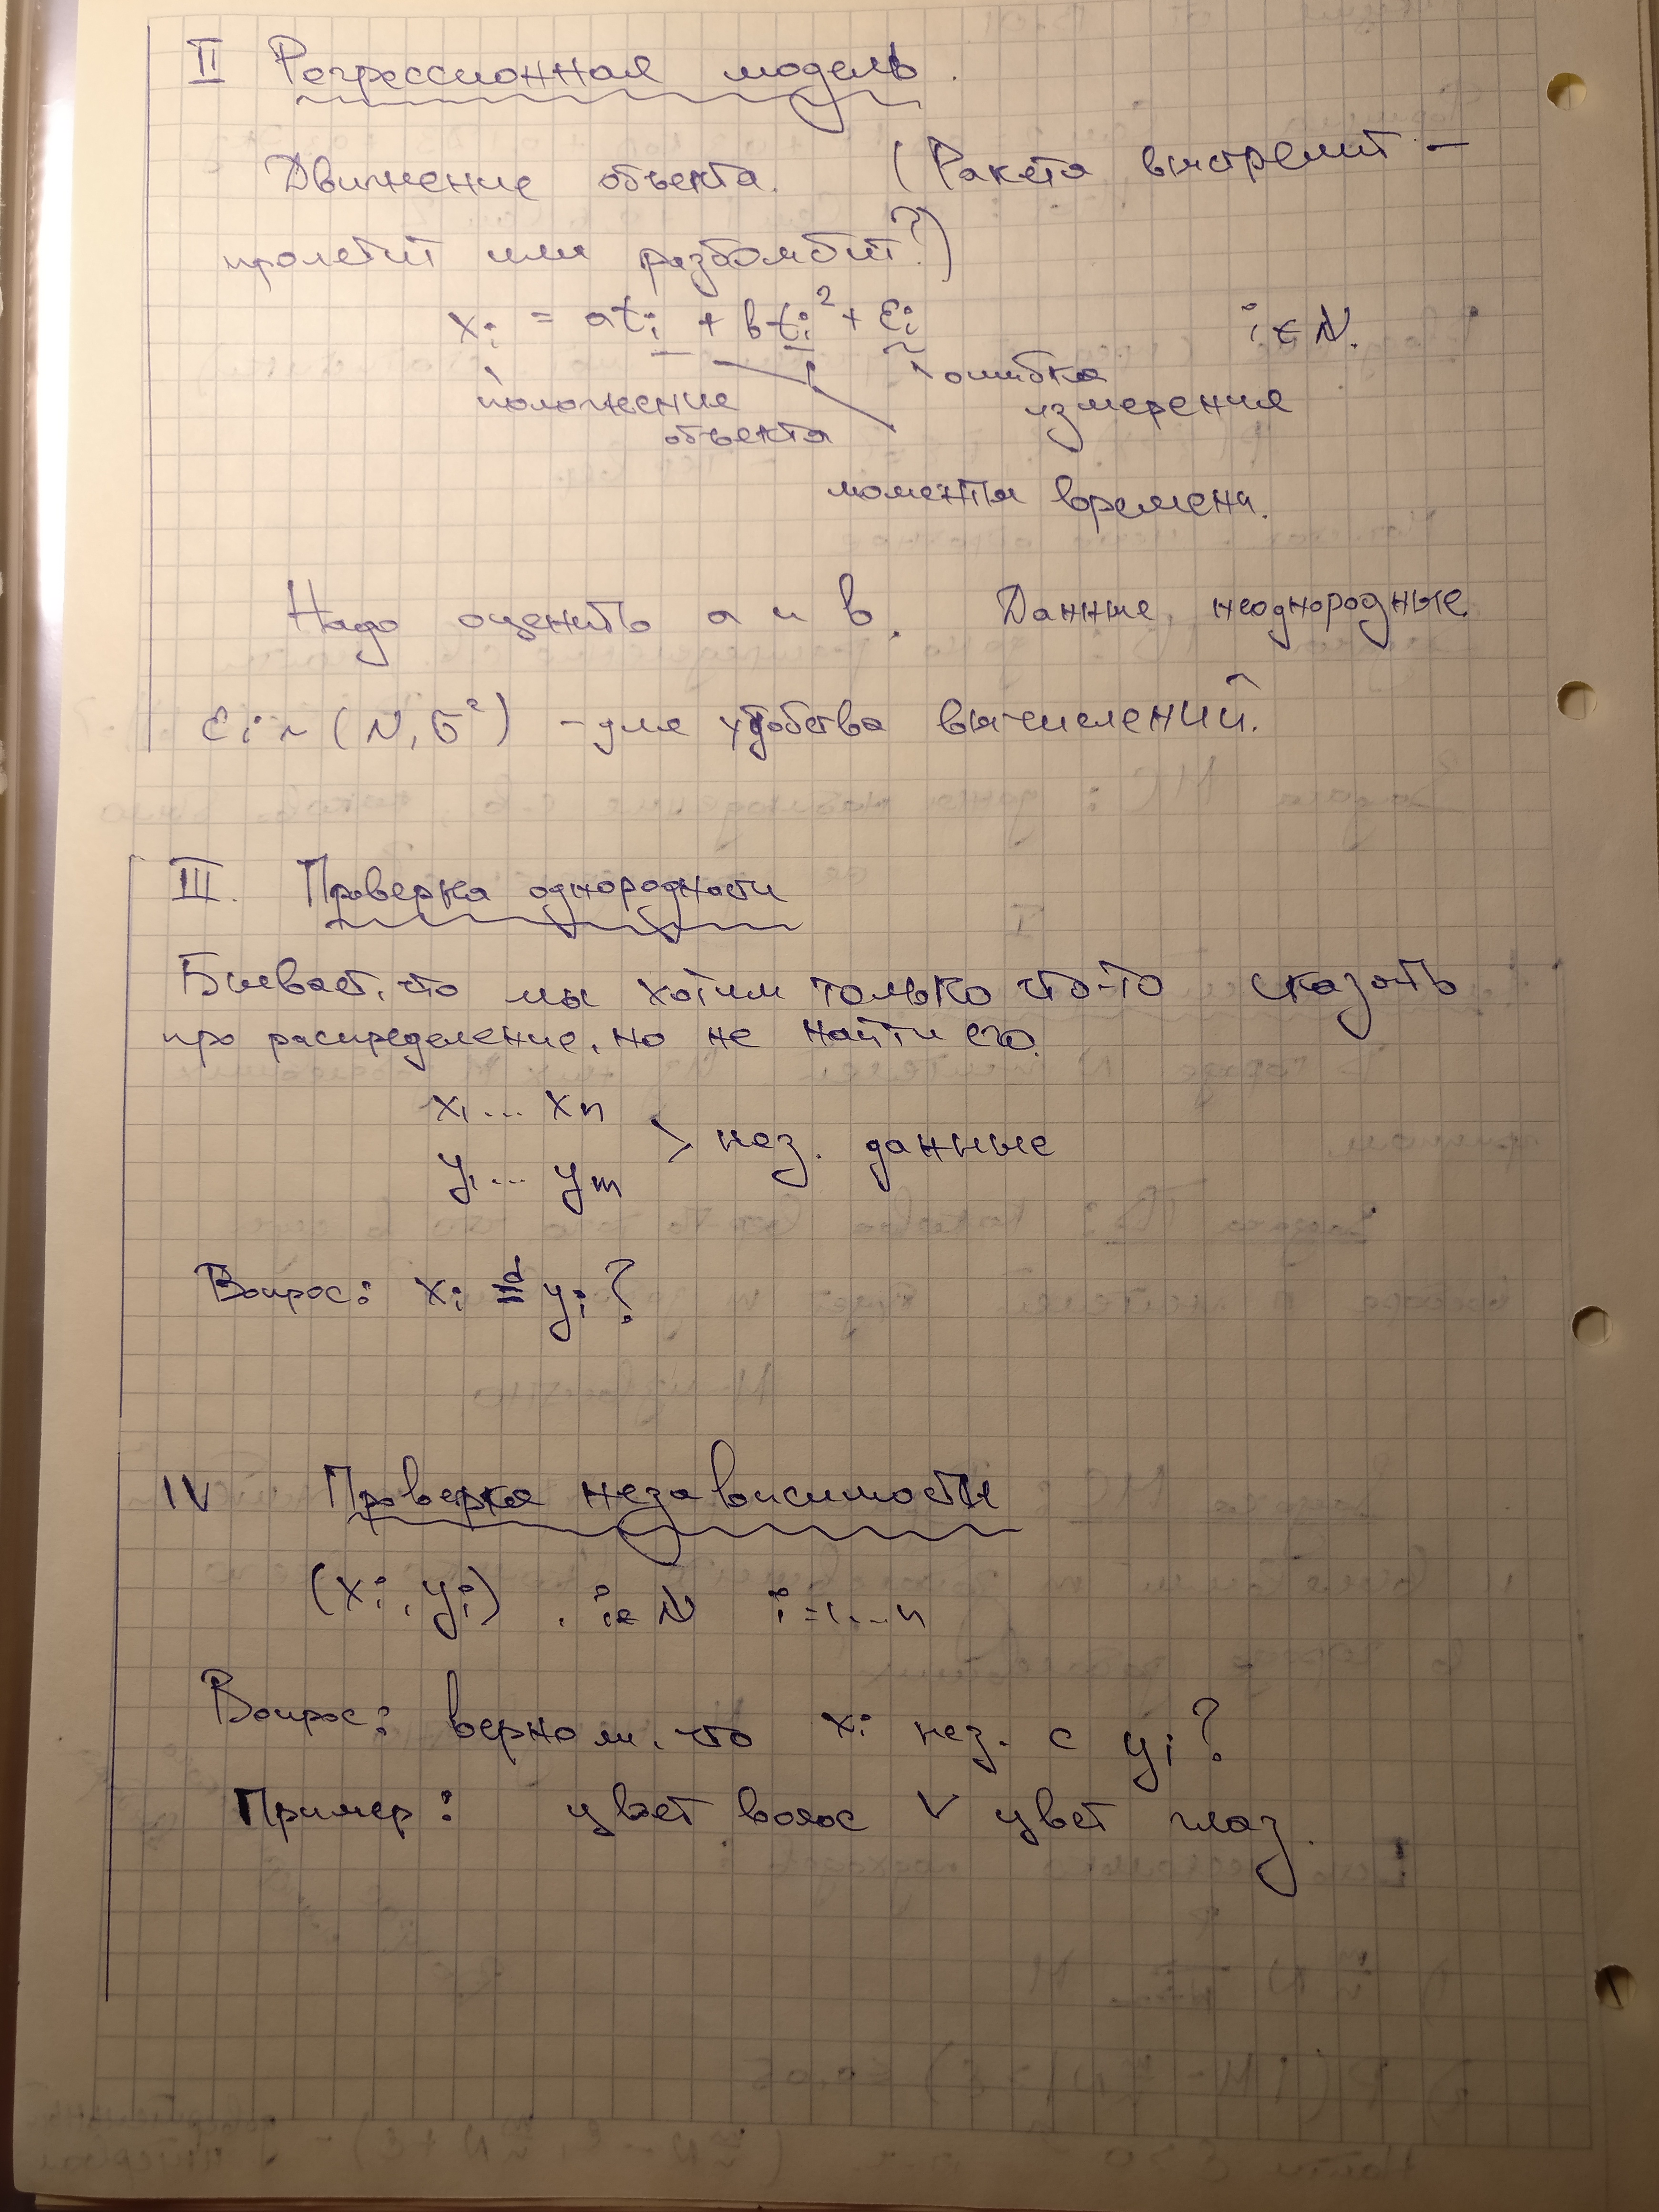 II Регрессионная модель.
Движение объекта. (Ракета выстрелит –
пролетит или разбомбит?)
xᵢ = atᵢ + btᵢ² + εᵢ i ∈ N.
положение объекта
ошибка измерения
моменты времени.
Надо оценить a и b. Данные неоднородные.
εᵢ ~ (N, σ²) – для удобства вычислений.
III. Проверка однородности
Бывает, что мы хотим только что-то сказать
про распределение, но не найти его.
x₁ ... xₙ
> нез. данные
y₁ ... yₘ
Вопрос: xᵢ ᵈ= yᵢ?
IV Проверка независимости
(xᵢ, yᵢ), i ∈ N i = 1...n
Вопрос: верно ли, что xᵢ нез. с yᵢ?
Пример: цвет волос V цвет глаз.